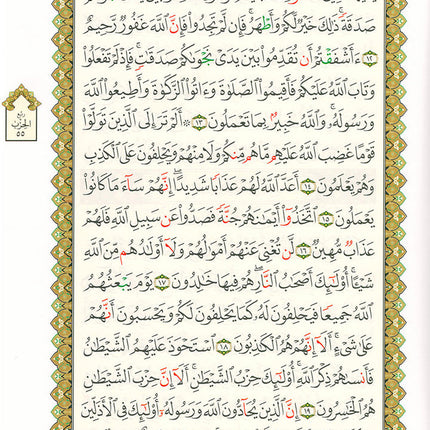 صَدَقَةً ذَٰلِكَ خَيْرٌ لَّكُمْ وَأَطْهَرُ فَإِن لَّمْ تَجِدُوا۟ فَإِنَّ ٱللَّهَ غَفُورٌ رَّحِيمٌ
١٢ ءَأَشْفَقْتُمْ أَن تُقَدِّمُوا۟ بَيْنَ يَدَىْ نَجْوَىٰكُمْ صَدَقَٰتٍ فَإِذْ لَمْ تَفْعَلُوا۟
وَتَابَ ٱللَّهُ عَلَيْكُمْ فَأَقِيمُوا۟ ٱلصَّلَوٰةَ وَءَاتُوا۟ ٱلزَّكَوٰةَ وَأَطِيعُوا۟ ٱللَّهَ
وَرَسُولَهُۥ وَٱللَّهُ خَبِيرٌۢ بِمَا تَعْمَلُونَ ١٣ ۞ أَلَمْ تَرَ إِلَى ٱلَّذِينَ تَوَلَّوْا۟
قَوْمًا غَضِبَ ٱللَّهُ عَلَيْهِم مَّا هُم مِّنكُمْ وَلَا مِنْهُمْ وَيَحْلِفُونَ عَلَى ٱلْكَذِبِ
وَهُمْ يَعْلَمُونَ ١٤ أَعَدَّ ٱللَّهُ لَهُمْ عَذَابًا شَدِيدًا إِنَّهُمْ سَآءَ مَا كَانُوا۟
يَعْمَلُونَ ١٥ ٱتَّخَذُوٓا۟ أَيْمَٰنَهُمْ جُنَّةً فَصَدُّوا۟ عَن سَبِيلِ ٱللَّهِ فَلَهُمْ
عَذَابٌ مُّهِينٌ ١٦ لَّن تُغْنِىَ عَنْهُمْ أَمْوَٰلُهُمْ وَلَآ أَوْلَٰدُهُم مِّنَ ٱللَّهِ
شَيْـًٔا أُو۟لَٰٓئِكَ أَصْحَٰبُ ٱلنَّارِ هُمْ فِيهَا خَٰلِدُونَ ١٧ يَوْمَ يَبْعَثُهُمُ
ٱللَّهُ جَمِيعًا فَيَحْلِفُونَ لَهُۥ كَمَا يَحْلِفُونَ لَكُمْ وَيَحْسَبُونَ أَنَّهُمْ
عَلَىٰ شَىْءٍ أَلَآ إِنَّهُمْ هُمُ ٱلْكَٰذِبُونَ ١٨ ٱسْتَحْوَذَ عَلَيْهِمُ ٱلشَّيْطَٰنُ
فَأَنسَىٰهُمْ ذِكْرَ ٱللَّهِ أُو۟لَٰٓئِكَ حِزْبُ ٱلشَّيْطَٰنِ أَلَآ إِنَّ حِزْبَ ٱلشَّيْطَٰنِ
هُمُ ٱلْخَٰسِرُونَ ١٩ إِنَّ ٱلَّذِينَ يُحَآدُّونَ ٱللَّهَ وَرَسُولَهُۥٓ أُو۟لَٰٓئِكَ فِى ٱلْأَذَلِّينَ
ربع
الحزب
٥٥